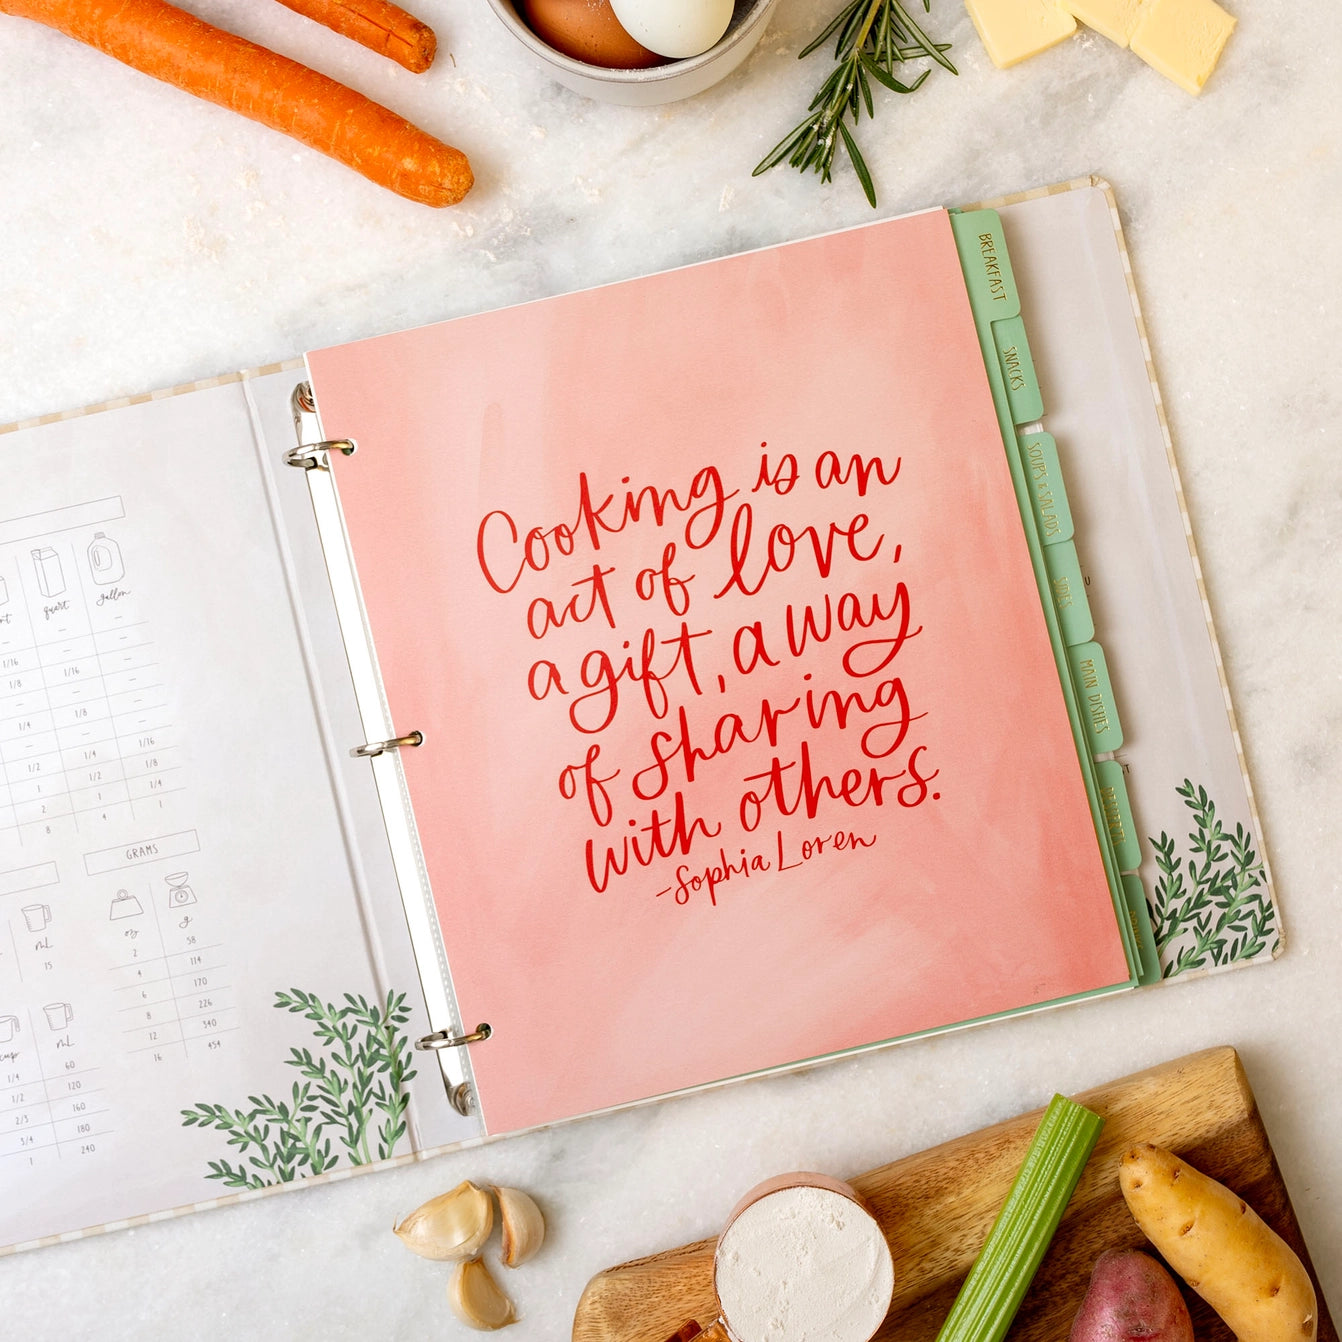 quart
gallon
–
–
–
–
1/16
–
–
1/8
1/16
–
–
–
–
1/4
1/8
–
–
–
–
1/2
1/4
1/16
1
1/2
1/8
2
1
1/4
8
4
1
GRAMS
mL
15
oz
g
2
58
4
114
6
170
8
226
12
340
16
454
cup
mL
1/4
60
1/2
120
2/3
160
3/4
180
1
240
Cooking is an
act of love,
a gift, a way
of sharing
with others.
-Sophia Loren
BREAKFAST
SNACKS
SOUPS & SALADS
SIDES
MAIN DISHES
DESSERTS
DRINKS